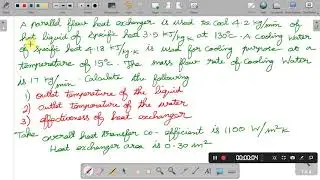 A parallel flow heat exchanger is used to cool 4.2 kg/min of
hot liquid of specific heat 3.5 KJ/kg K at 130°C. A Cooling Water
of specific heat 4.18 KJ/kg K is used for Cooling purpose at a
temperature of 15°C. The mass flow rate of Cooling Water
is 17 kg/min. Calculate the following
1) outlet temperature of the liquid
2) outlet temperature of the water
3) effectiveness of heat exchanger
Take overall heat transfer co-efficient is 1100 W/m²K
Heat exchanger area is 0.30 m²
00:00:04